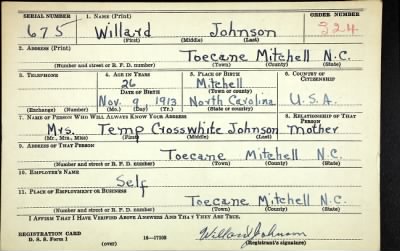 SERIAL NUMBER 1. NAME (Print) ORDER NUMBER
675 Willard Johnson 324
(First) (Middle) (Last)
2. ADDRESS (Print)
Toecane Mitchell N.C.
(Number and street or R. F. D. number) (Town) (County) (State)
3. TELEPHONE 4. AGE IN YEARS 5. PLACE OF BIRTH 6. COUNTRY OF CITIZENSHIP
26 Mitchell
DATE OF BIRTH (Town or county)
Nov. 9 1913 North Carolina U.S.A.
(Exchange) (Number) (Mo.) (Day) (Yr.) (State or country)
7. NAME OF PERSON WHO WILL ALWAYS KNOW YOUR ADDRESS 8. RELATIONSHIP OF THAT PERSON
Mrs. Temp Crosswhite Johnson Mother
(Mr., Mrs., Miss) (First) (Middle) (Last)
9. ADDRESS OF THAT PERSON
Toecane Mitchell N.C.
(Number and street or R. F. D. number) (Town) (County) (State)
10. EMPLOYER'S NAME
Self
11. PLACE OF EMPLOYMENT OR BUSINESS
Toecane Mitchell N.C.
(Number and street or R. F. D. number) (Town) (County) (State)
I AFFIRM THAT I HAVE VERIFIED ABOVE ANSWERS AND THAT THEY ARE TRUE.
REGISTRATION CARD
D. S. S. Form 1 16—17105 Willard Johnson
(over) (Registrant's signature)